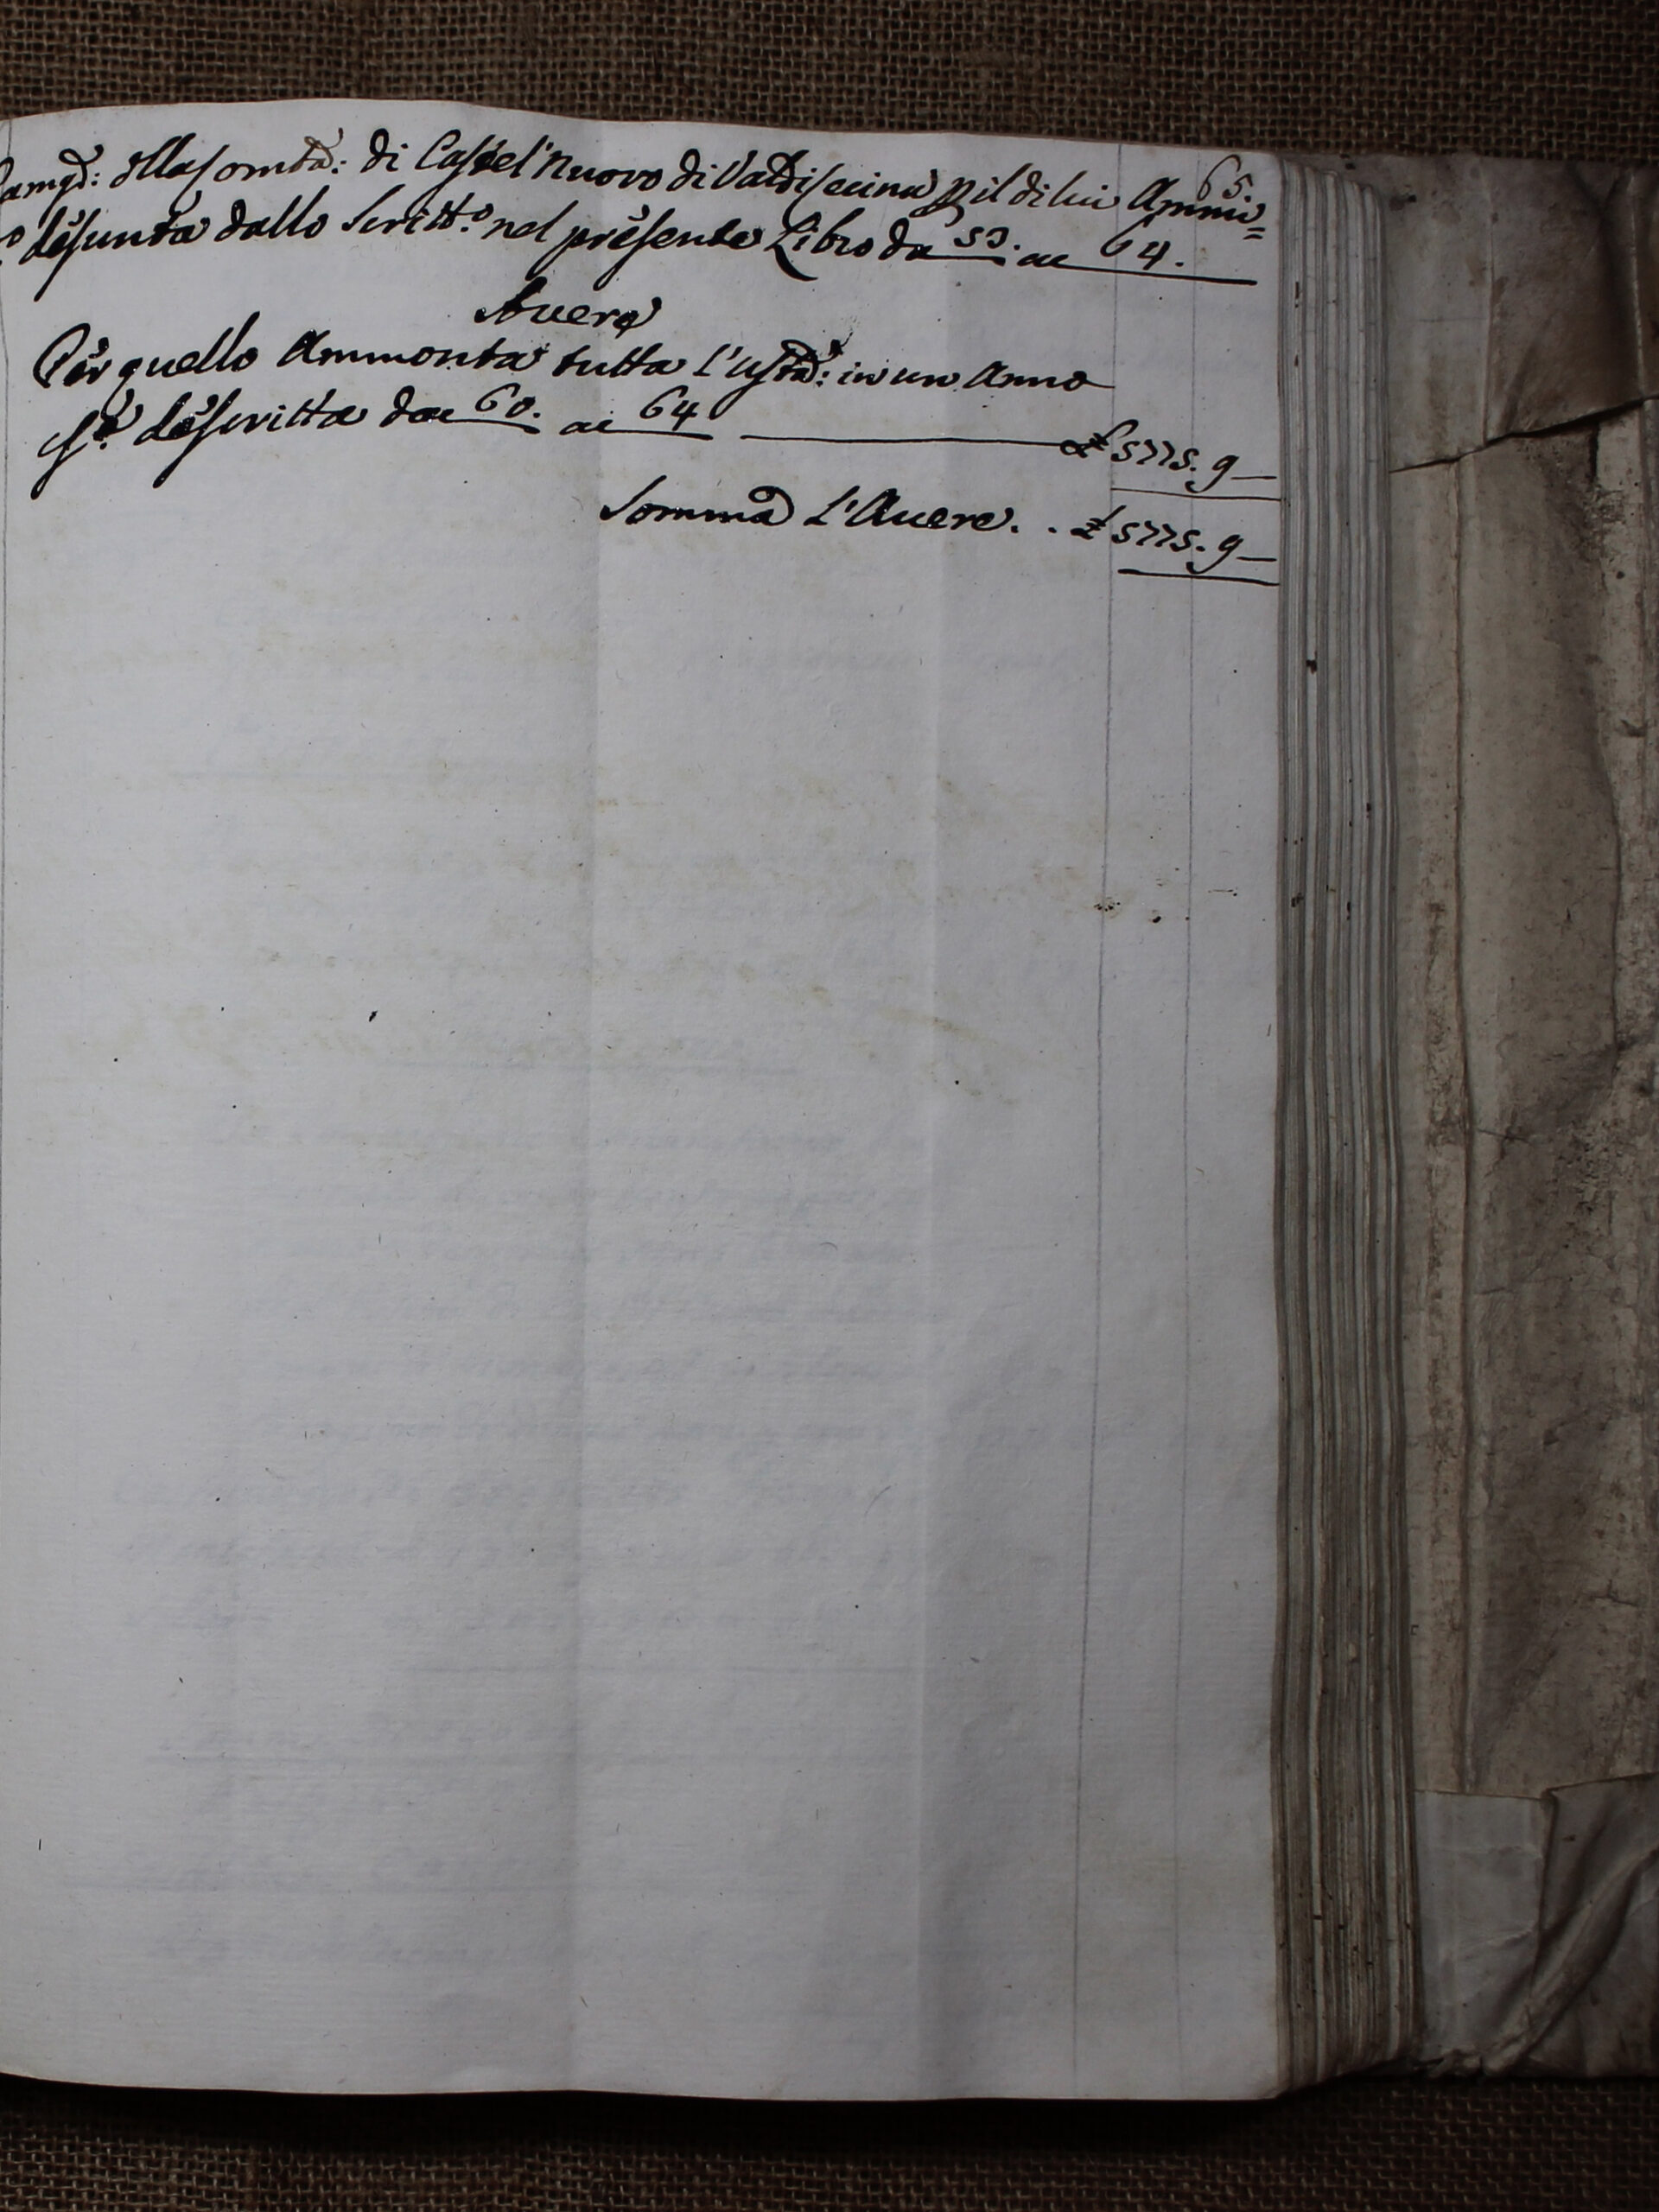 65.
Camgd: Masomtà: di Castel'nuovo di Valdisecina p il di lui Ammi=
desunta dallo Scritt.o nel presente Libro da 53. a 64.
Avere
Per quello Ammonta tutta l'ustà: in un Anno
So. descritta da 60. a 64 £ 5775. 9 _
Somma L'Avere. . £ 5775. 9 _